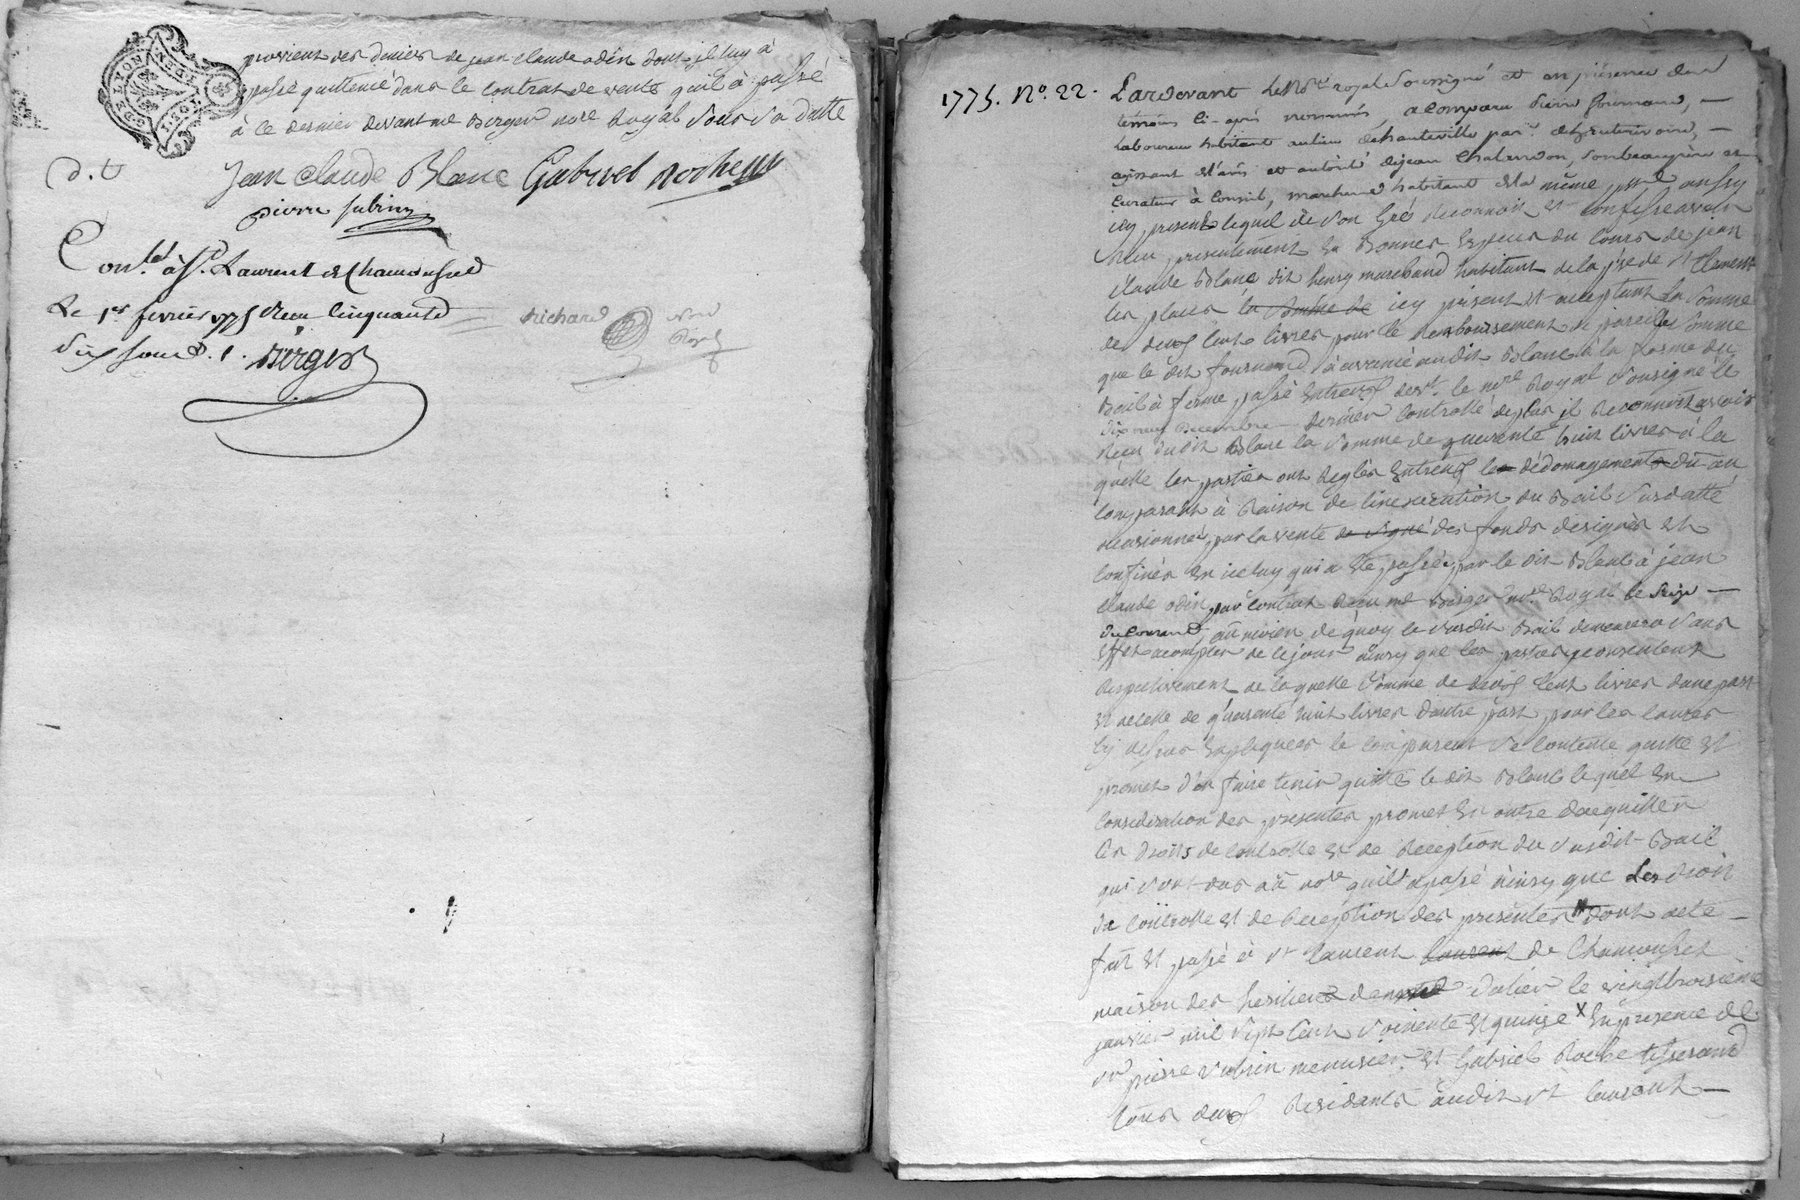 GEN DE LYON
provient des deniers de jean claude odin dont il luy à
passé quittence dans le contrat de vente quil à passé
à ce dernier devant me Berger nore Royal sous sa datte
d. t
Jean claude Blanc Gabriel Roche
pierre subrin
Con.lé à St. Laurent de Chamousset
Le 1er fevrier 1775 Reçu cinquante
dix sous d. 1. Berger
Richard nore Royl
1775. No. 22. Pardevant Le Nore royal soussigné et en présence des
temoins ci-après nommés, a comparu pierre fournand, —
laboureur habitant au lieu de hauteville par.
agissant d'avis et autorité de jean Chalandon, son beaupère et
curateur à Conseil, marchand habitant de la même psse aussy
icy present lequel de son Gré Reconnoit et confesse avoir
Reçu presentement en Bonnes Especes du cours de jean
claude Blanc dit henry marchand habitant de la psse de st Clement
les places la somme de icy present et acceptant La somme
de deux cent livres pour le Remboursement de pareille somme
que le dit fournand à avancé audit Blanc à la forme du
Bail à ferme passé Entreux devt. le nore Royal soussigné le
dix neuf decembre dernier controllé deplus il Reconnoit avoir
Reçu dudit Blanc la somme de quarente huit livres à la
quelle les parties ont Reglés Entreux les dédomagements dû au
comparant à Raison de linexecution du Bail susdatté
occasionnés par la vente de vigne des fonds designés et
confinés en iceluy qui a été passée par le dit Blanc à jean
claude odin par contrat Reçu me Berger nore Royal le seize —
du courant, au moien de quoy le susdit Bail demeurera sans
Effet acompter de ce jour ainsy que les parties y consentent
Respectivement de la quelle somme de deux cent livres dune part
et de celle de quarente huit livres dautre part pour les causes
cy dessus Expliquées le comparant se contente quitte et
promet d'en faire tenir quitte le dit Blanc lequel en
consideration des presentes promet en outre dacquitter
les droits de controlle et de Reception du susdit Bail
qui sont dus au nore quil à passé ainsy que Les droit
de controlle et de Reception des presentes dont acte —
fait et passé à st laurent laurent de Chamousset
maison des heritiers dalier le vingttroisieme
janvier mil sept cent soixente et quinze x En presence de
sr pierre subrin menusier, et Gabriel Roche tisserand
tous deux Residants audit st laurent —